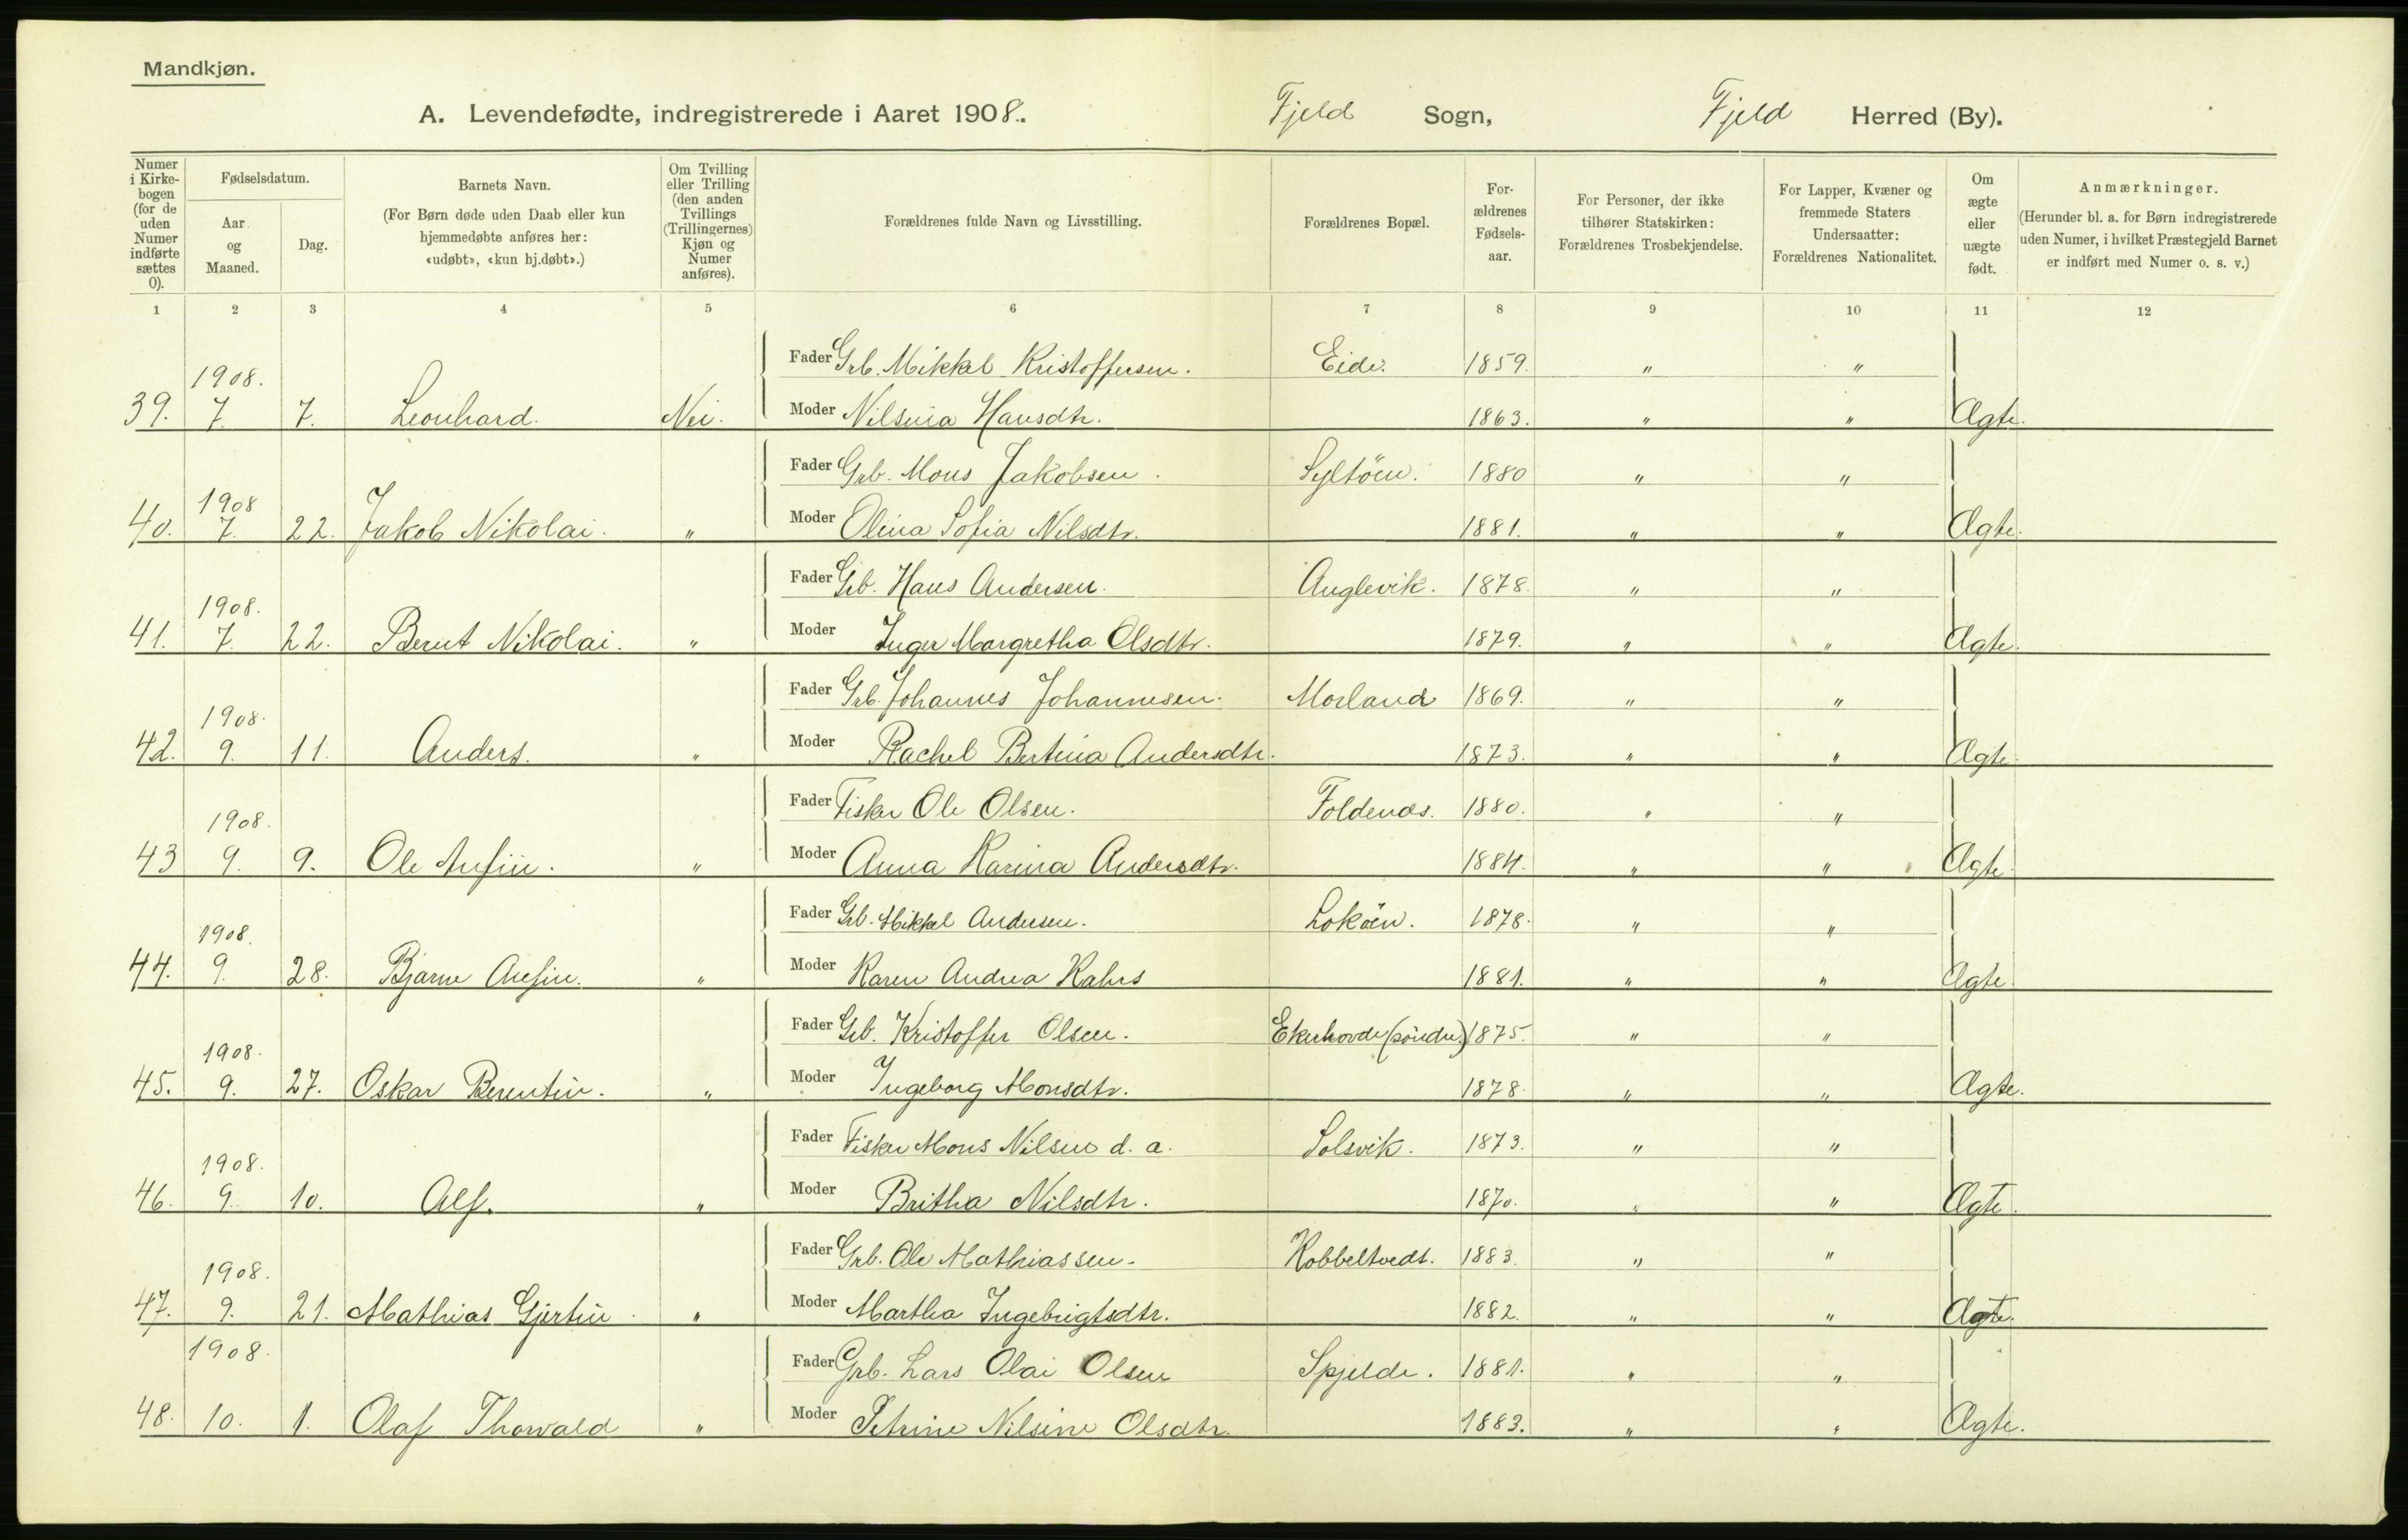 Mandkjøn.
A. Levendefødte, indregistrerede i Aaret 1908.. Fjeld Sogn, Fjeld Herred (By).
Numer i Kirkebogen (for de uden Numer indførte sættes 0).
Fødselsdatum.
Aar og Maaned.
Dag.
Barnets Navn.
(For Børn døde uden Daab eller kun hjemmedøbte anføres her: «udøbt», «kun hj.døbt».)
Om Tvilling eller Trilling (den anden Tvillings (Trillingernes) Kjøn og Numer anføres).
Forældrenes fulde Navn og Livsstilling.
Forældrenes Bopæl.
Forældrenes Fødselsaar.
For Personer, der ikke tilhører Statskirken: Forældrenes Trosbekjendelse.
For Lapper, Kvæner og fremmede Staters Undersaatter: Forældrenes Nationalitet.
Om ægte eller uægte født.
Anmærkninger.
(Herunder bl. a. for Børn indregistrerede uden Numer, i hvilket Præstegjeld Barnet er indført med Numer o. s. v.)
1 2 3 4 5 6 7 8 9 10 11 12
Fader Grb. Mikkel Kristoffersen. Eide. 1859. " "
39. 1908. 7. 7. Leonhard. Nei. Moder Nilsina Hansdtr. 1863. " " Ægte.
Fader Grb. Mons Jakobsen. Syltöen. 1880 " "
40. 1908 7. 22. Jakob Nikolai. " Moder Olina Sofia Nilsdtr. 1881. " " Ægte.
Fader Grb. Hans Andersen. Anglevik. 1878. " "
41. 1908. 7. 22. Bernt Nikolai. " Moder Inger Margretha Olsdtr. 1879. " " Ægte.
Fader Grb. Johannes Johannesen. Morland 1869. " "
42. 1908. 9. 11. Anders. " Moder Rachel Bertina Andersdtr. 1873. " " Ægte.
Fader Fisker Ole Olsen. Foldenæs. 1880. " "
43 1908. 9. 9. Ole Anfin. " Moder Anna Karina Andersdtr. 1884. " " Ægte.
Fader Grb. Mikkel Andersen. Loköen. 1878. " "
44. 1908. 9. 28. Bjarne Anfin. " Moder Karen Andrea Kahrs 1881. " " Ægte.
Fader Grb. Kristoffer Olsen. Ekerhovde (söndre) 1875. " "
45. 1908. 9. 27. Oskar Berentin. " Moder Ingeborg Monsdtr. 1878. " " Ægte.
Fader Fisker Mons Nilsen d. a. Solsvik. 1873. " "
46. 1908. 9. 10. Alf. " Moder Britha Nilsdtr. 1870. " " Ægte.
Fader Grb. Ole Mathiassen. Kobbeltvedt. 1883. " "
47. 1908. 9. 21. Mathias Gjertin. " Moder Martha Ingebrigtsdtr. 1882. " " Ægte.
Fader Grb. Lars Olai Olsen Spjelde. 1881. " "
48. 1908. 10. 1. Olaf Thorvald " Moder Petrine Nilsine Olsdtr. 1883. " " Ægte.